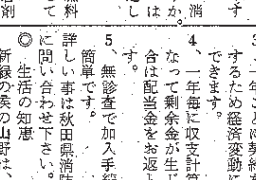 3、一年ごとに契約を
するため経済変動に
できます。
4、一年毎に収支計算
なって剰余金が生じ
合は配当金をお返し
す。
5、無診査で加入手続
簡単です。
詳しい事は秋田県消防
に問い合わせ下さい。
◎　生活の知恵
新緑の候の山野は、